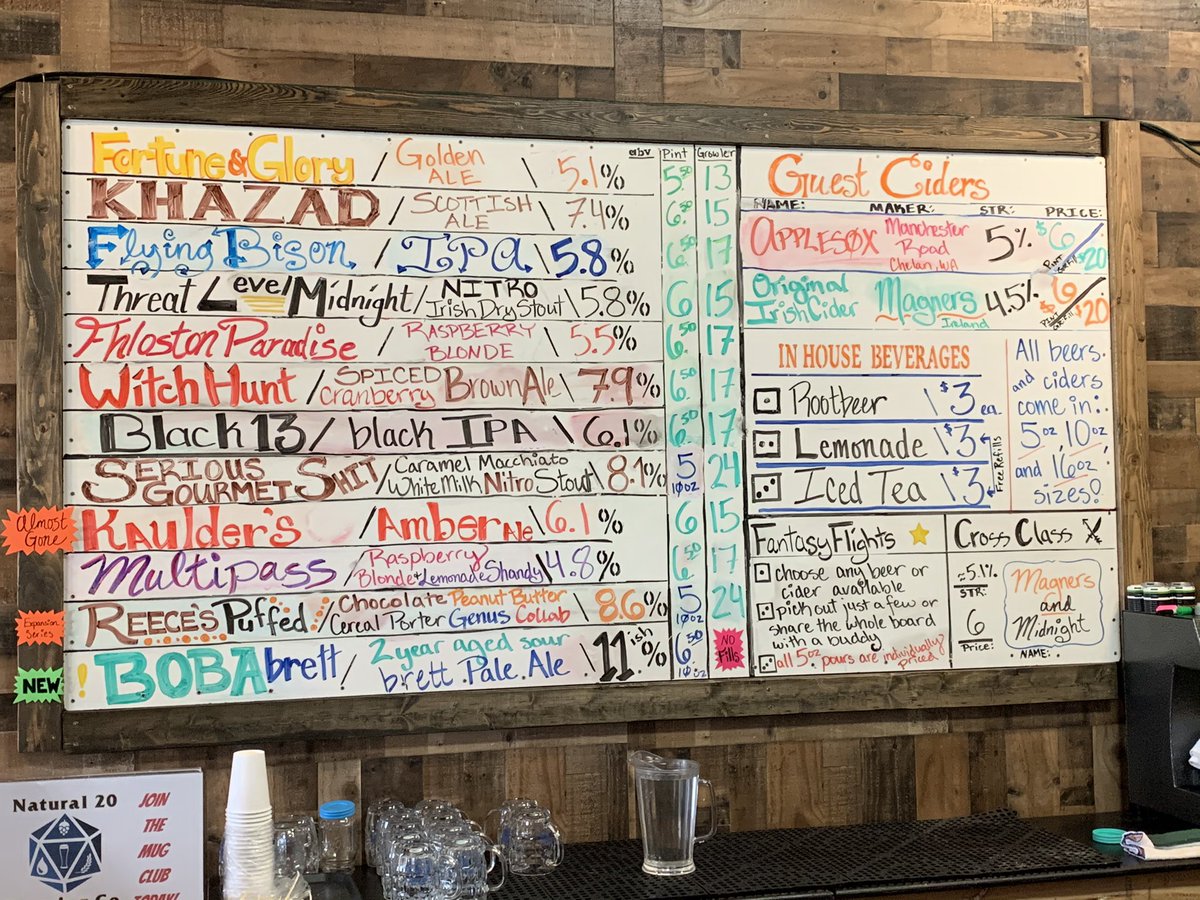 abv Pint Growler
Fortune & Glory / Golden ALE \ 5.1% 5.50 13
KHAZAD / SCOTTISH ALE \ 7.4% 6.50 15
Flying Bison / IPA \ 5.8% 6.50 17
Threat Level Midnight / NITRO Irish Dry Stout \ 5.8% 6 15
Fhloston Paradise / RASPBERRY BLONDE \ 5.5% 6.50 17
Witch Hunt / SPICED Cranberry Brown Ale \ 7.9% 6.50 17
Black 13 / black IPA \ 6.1% 6.50 17
SERIOUS GOURMET SHIT / Caramel Macchiato White Milk Nitro Stout \ 8.1% 5 10oz 24
Almost Gone
KAULDER'S / AMBER ALE \ 6.1% 6 15
Multipass / Raspberry Blonde & Lemonade Shandy \ 4.8% 6.50 17
Expansion Series
REECE'S Puffed / Chocolate Peanut Butter Cereal Porter Genus Collab \ 8.6% 5 10oz 24
NEW
! BOBA brett / 2 year aged sour brett Pale Ale \ 11ish% 6.50 10oz NO Fills
Guest Ciders
NAME: MAKER: STR: PRICE:
APPLESØX Manchester Road Chelan, WA 5% $6 PINT / $20
Original Irish Cider Magners Ireland 4.5% $6 PINT / $20
IN HOUSE BEVERAGES
Rootbeer \ $3 ea.
Lemonade \ $3
Iced Tea \ $3
Free Refills
All beers
and ciders
come in:
5oz, 10oz
and 16oz
sizes!
Fantasy Flights
choose any beer or
cider available
pick out just a few or
share the whole board
with a buddy
all 5oz pours are individually
priced
Cross Class
~5.1%
STR:
6
Price:
Magners
and
Midnight
NAME:
Natural 20
JOIN
THE
MUG
CLUB
TODAY!